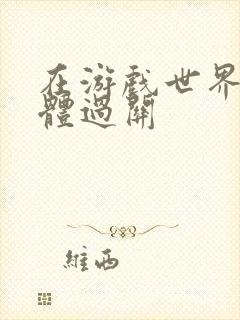 在游戏世界
體過關
維西